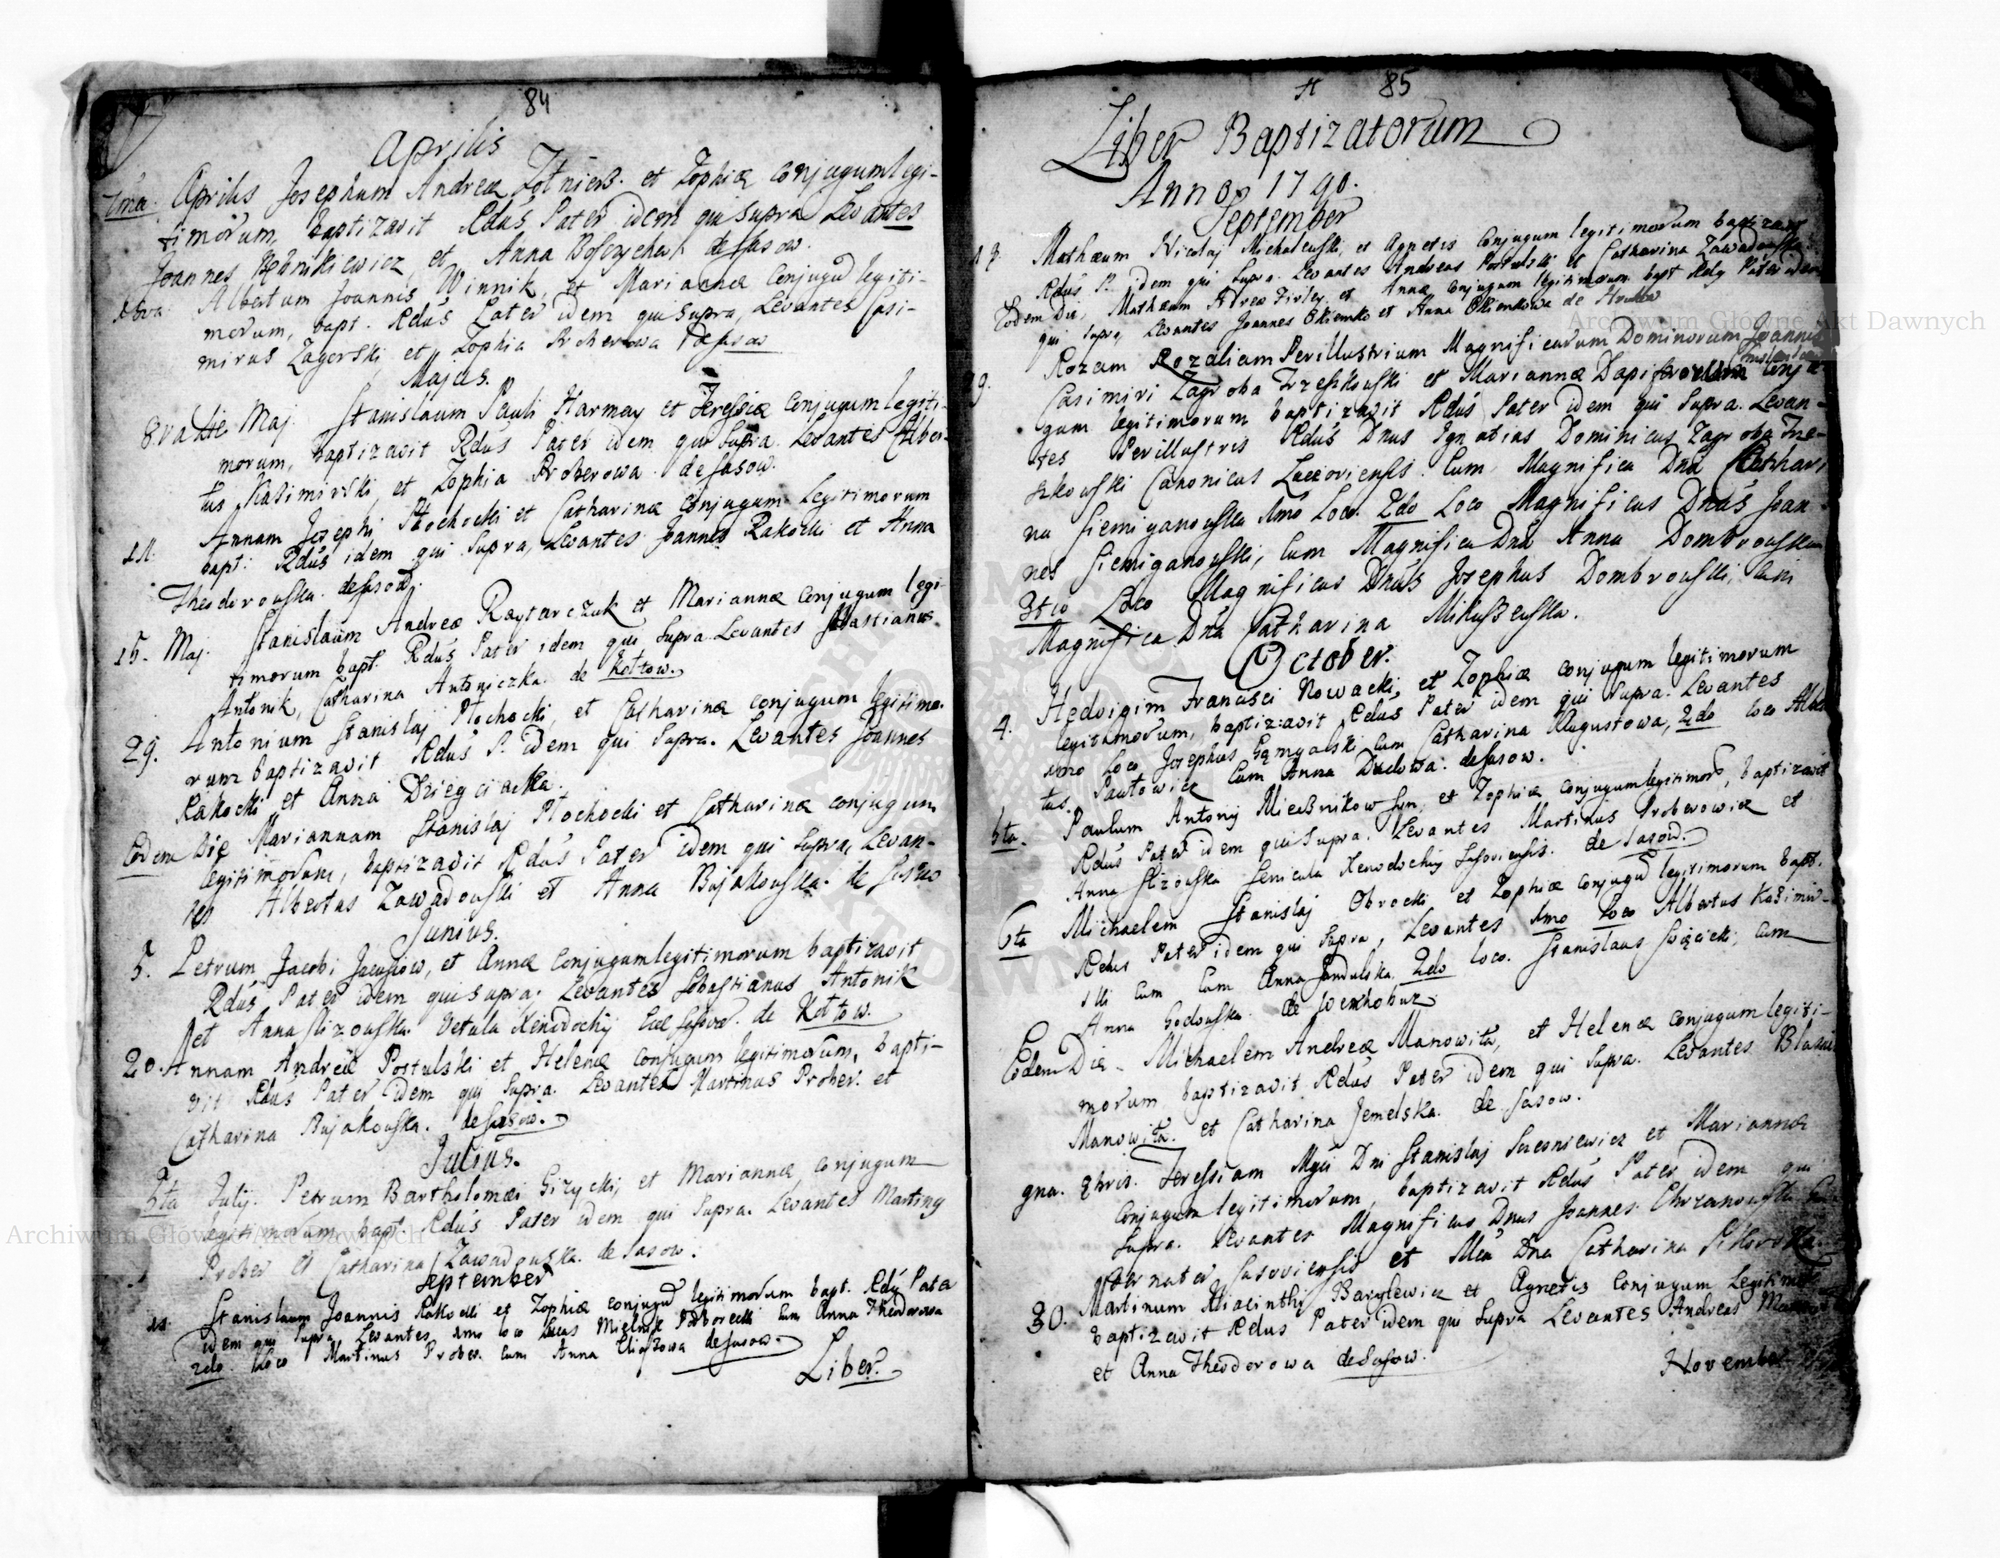 84
Aprilis
7ma. Aprilis Josephum Andreæ Zołnierz. et Zophiæ conjugum legi-
timorum, baptizavit Rdus Pater idem qui supra Levantes
Joannes et Anna de Sasow.
8va. Albertum Joannis Winnik, et Mariannæ conjugū legiti-
morum, bapt. Rdus Pater idem qui supra, Levantes Casi-
mirus Zagorski, et Zophia Proberowa de Sasow
Majus.
8va die Maj. Stanislaum Pauli Harmay et Teressiæ conjugum legiti-
morum, baptizavit Rdus Pater idem qui supra. Levantes Alber-
tus Kazimirski, et Zophia Proberowa. de Sasow.
11. Annam Josephi Płochocki et Catharinæ conjugum legitimorum
bapt: Rdus idem qui supra, Levantes Joannes Rakocki et Anna
Theodorouska. de Sasow.
15. Maj. Stanislaum Andreæ Raytarczuk et Mariannæ conjugum legi-
timorum bapt. Rdus Pater idem qui supra Levantes Sebastianus
Antonik, Catharina Antoniczka. de Kołtow.
29. Antonium Stanislaj Płochocki, et Catharinæ conjugum legitimo-
rum baptizavit Rdus P. idem qui supra. Levantes Joannes
Rakocki et Anna
Eodem Die Mariannam Stanislaj Płochocki et Catharinæ conjugum
legitimorum, baptizavit Rdus Pater idem qui supra, Levan-
tes Albertus Zawadouski et Anna Bujakouska. de Sasow
Junius.
5. Petrum Jacobi Jacusiow, et Annæ conjugum legitimorum baptizavit
Rdus Pater idem qui supra. Levantes Sebastianus Antonik
et Anna Slizouska. Vetula Xenodochij Sasow. de Kołtow.
20. Annam Andreæ Postulski et Helenæ conjugum legitimorum, bapti-
vit Rdus Pater idem qui supra. Levantes Martinus Prober. et
Catharina Bujakouska. de Sasow.
Julius.
5ta Julij. Petrum Bartholomæi Gizycki, et Mariannæ conjugum
legitimorum bapt. Rdus Pater idem qui supra. Levantes Martiny
Prober et Catharina Zawadouska. de Sasow.
September
Stanislaum Joannis Rakocki et Zophiæ conjugū legitimorum bapt. Rdy Pater
idem qui supra Levantes 1mo loco Lucas cum Anna Theodorowa
2do. loco Martinus Prober cum Anna de Sasow.
Liber.
85
Liber Baptizatorum
Anno 1790.
September
Mathæum Nicolaj Michaleuski, et Agnetis conjugum legitimorum baptizavit
Rdus P. idem qui supra. Levantes Andreas Postulski et Catharina Zawadouska.
Eodem Die, Mathæum Andreæ Firley, et Annæ conjugum legitimorum bapt Rdy Pater idem
qui supra, Levantes Joannes Okienko et Anna Okienkowa de
Rozam Rozaliam Perillustrium Magnificorum Dominorum Joannis
Casimiri Zagroba Trzeszkouski et Mariannæ Dapiferorum conju-
gum legitimorum baptizavit Rdus Pater idem qui supra. Levan-
tes Perillustris Rdus Dnus Ignatius Dominicus Zagroba Trze-
szkouski Canonicus Luceoriensis. Cum Magnifica Dna Cathari-
na Siemiganouska 1mo Loco. 2do Loco Magnificus Dnus Joan-
nes Siemiganouski, Cum Magnifica Dna Anna Dombrouska
3tio Loco Magnificus Dnus Josephus Dombrouski, Cum
Magnifica Dna Catharina Mikuszeuska.
October.
4. Hedvigim Francisci Nowacki, et Zophiæ conjugum legitimorum
legitimorum, baptizavit Rdus Pater idem qui supra. Levantes
1mo Loco Josephus cum Catharina Augustowa, 2do loco Alber-
tus Pawłowicz cum Anna Dudowa. de Sasow.
5ta. Paulum Antonij et Zophiæ conjugum legitimorū, baptizavit
Rdus Pater idem qui supra. Levantes Martinus Proberowicz et
Anna Slizouska Senicula Xenodochij Sasoviensis. de Sasow.
6ta Michaelem Stanislaj Obrocki et Zophiæ conjugū legitimorum bapt.
Rdus Pater idem qui supra, Levantes 1mo loco Albertus Kazimir-
ski cum cum Anna 2do loco. Stanislaus Swięcicki, cum
Anna de Werchobuz.
Eodem Die Michaelem Andreæ Manowita, et Helenæ conjugum legiti-
morum baptizavit Rdus Pater idem qui supra. Levantes Blasius
Manowita. et Catharina Jemelska. de Sasow.
9na. 8bris. Teressiam Mgci Dni Stanislaj et Mariannæ
conjugum legitimorum, baptizavit Rdus Pater idem qui
supra. Levantes Magnificus Dnus Joannes Chrzanouski Gu-
bernater Sasoviensis et Mca Dna Catharina
30. Martinum Hiacinthi Barylewicz et Agnetis conjugum legitimor
baptizavit Rdus Pater idem qui supra Levantes Andreas
et Anna Theodorowa de Sasow.
November
Archiwum Główne Akt Dawnych
Archiwum Główne Akt Dawnych